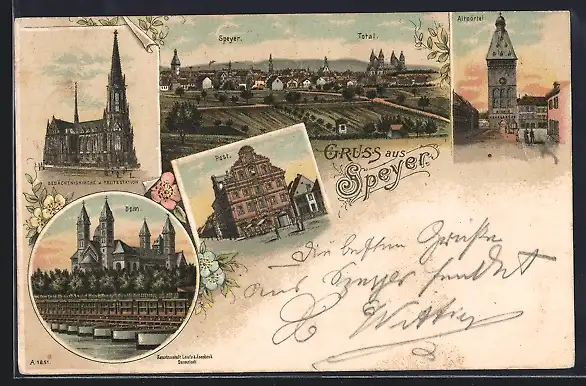 Speyer.
Total.
Altpörtel
GEDÄCHTNISKIRCHE D. PROTESTATION.
Post.
GRUSS aus
Speyer.
Dom.
Die besten Grüße
aus Speyer sendet
A. 1851.
Kunstanstalt Lautz & Isenbeck
Darmstadt